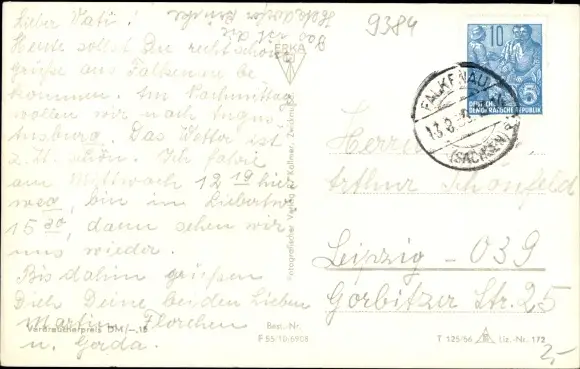 Das ist die
Hetzdorfer Brücke
9384
Lieber Vati!
Heute sollst Du recht schöne
Grüße aus Falkenau be
kommen. Am Nachmittag
wollen wir nach Augus
tusburg. Das Wetter ist
z. Zt. schön. Ich fahre
am Mittwoch 12 19 hier
weg, bin in
15 30, dann sehen wir
uns wieder.
Bis dahin grüßen
Dich Deine beiden Lieben
Martin, Florchen
u. Gerda.
ERKA
Fotografischer Verlag Kallmer, Zwickau
Verbraucherpreis DM -,15
Best.-Nr.
F 55/10/6908
10
5
DEUTSCHE
DEMOKRATISCHE REPUBLIK
FALKENAU
(SACHSEN)
Herrn
Arthur Schönfeld
Leipzig - O39
Gorbitzer Str. 25
T 125/56 Liz.-Nr. 172
2,-